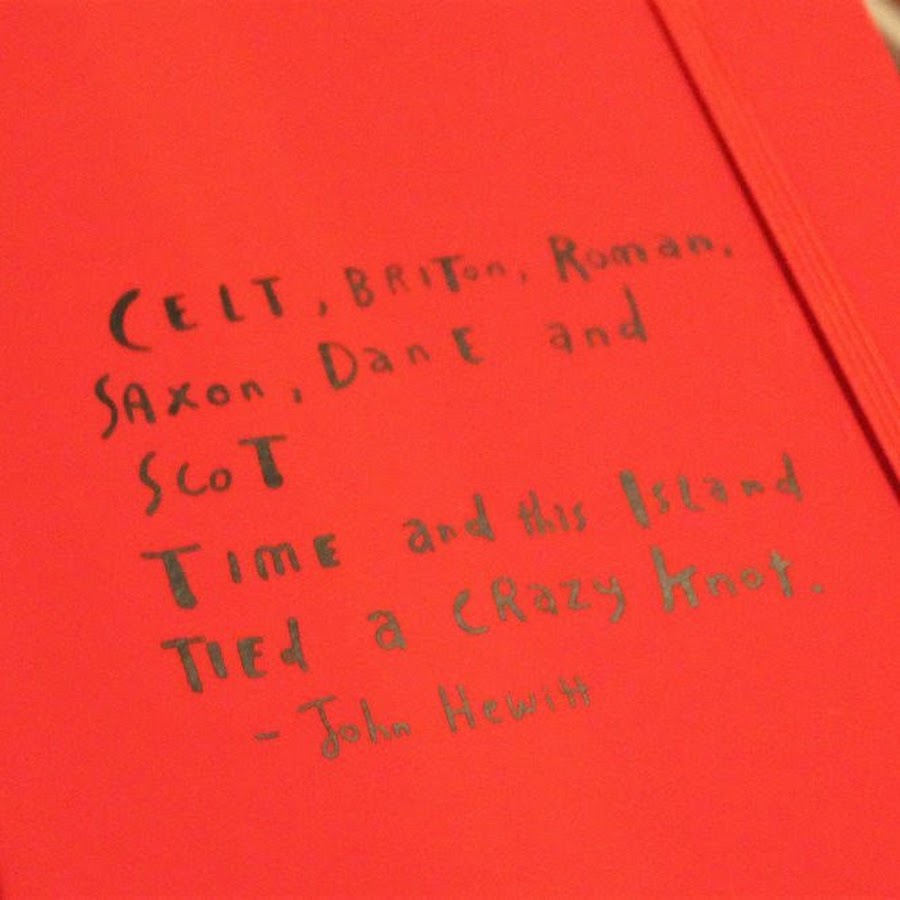 CELT, BRITon, Roman,
SAxon, DanE and
ScoT
TIME and this Island
TIEd a CRazy knot.
- John Hewitt